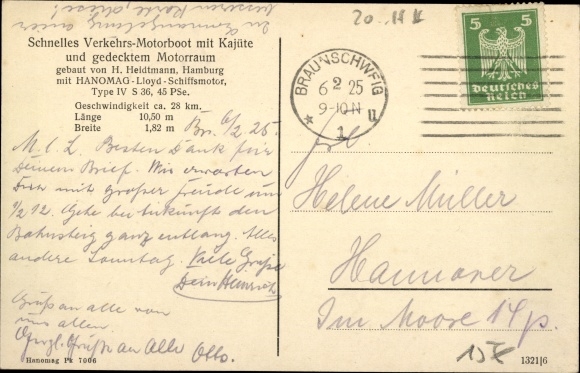 zu Ermangelung einer
besseren Karte, diese!
20.
Schnelles Verkehrs-Motorboot mit Kajüte
und gedecktem Motorraum
gebaut von H. Heidtmann, Hamburg
mit HANOMAG-Lloyd-Schiffsmotor,
Type IV S 36, 45 PSe.
Geschwindigkeit ca. 28 km.
Länge 10,50 m
Breite 1,82 m
Br. 6/2. 25.
M. l. L. Besten Dank für
Deinen Brief. Wir erwarten
Dich mit großer Freude um
1/2 12. Gehe bei Ankunft den
Bahnsteig ganz entlang. Alles
andere Sonntag. Viele Grüße
Dein Heinrich
Gruß an alle von
uns allen.
Herzl. Grüße an Alle Otto.
Hanomag Pk 7006
BRAUNSCHWEIG
6 2 25
9-10 N
* 1 u
5 5
Deutsches
Reich
Frl.
Helene Müller
Hannover
Im Moore 14 p.
15
1321|6